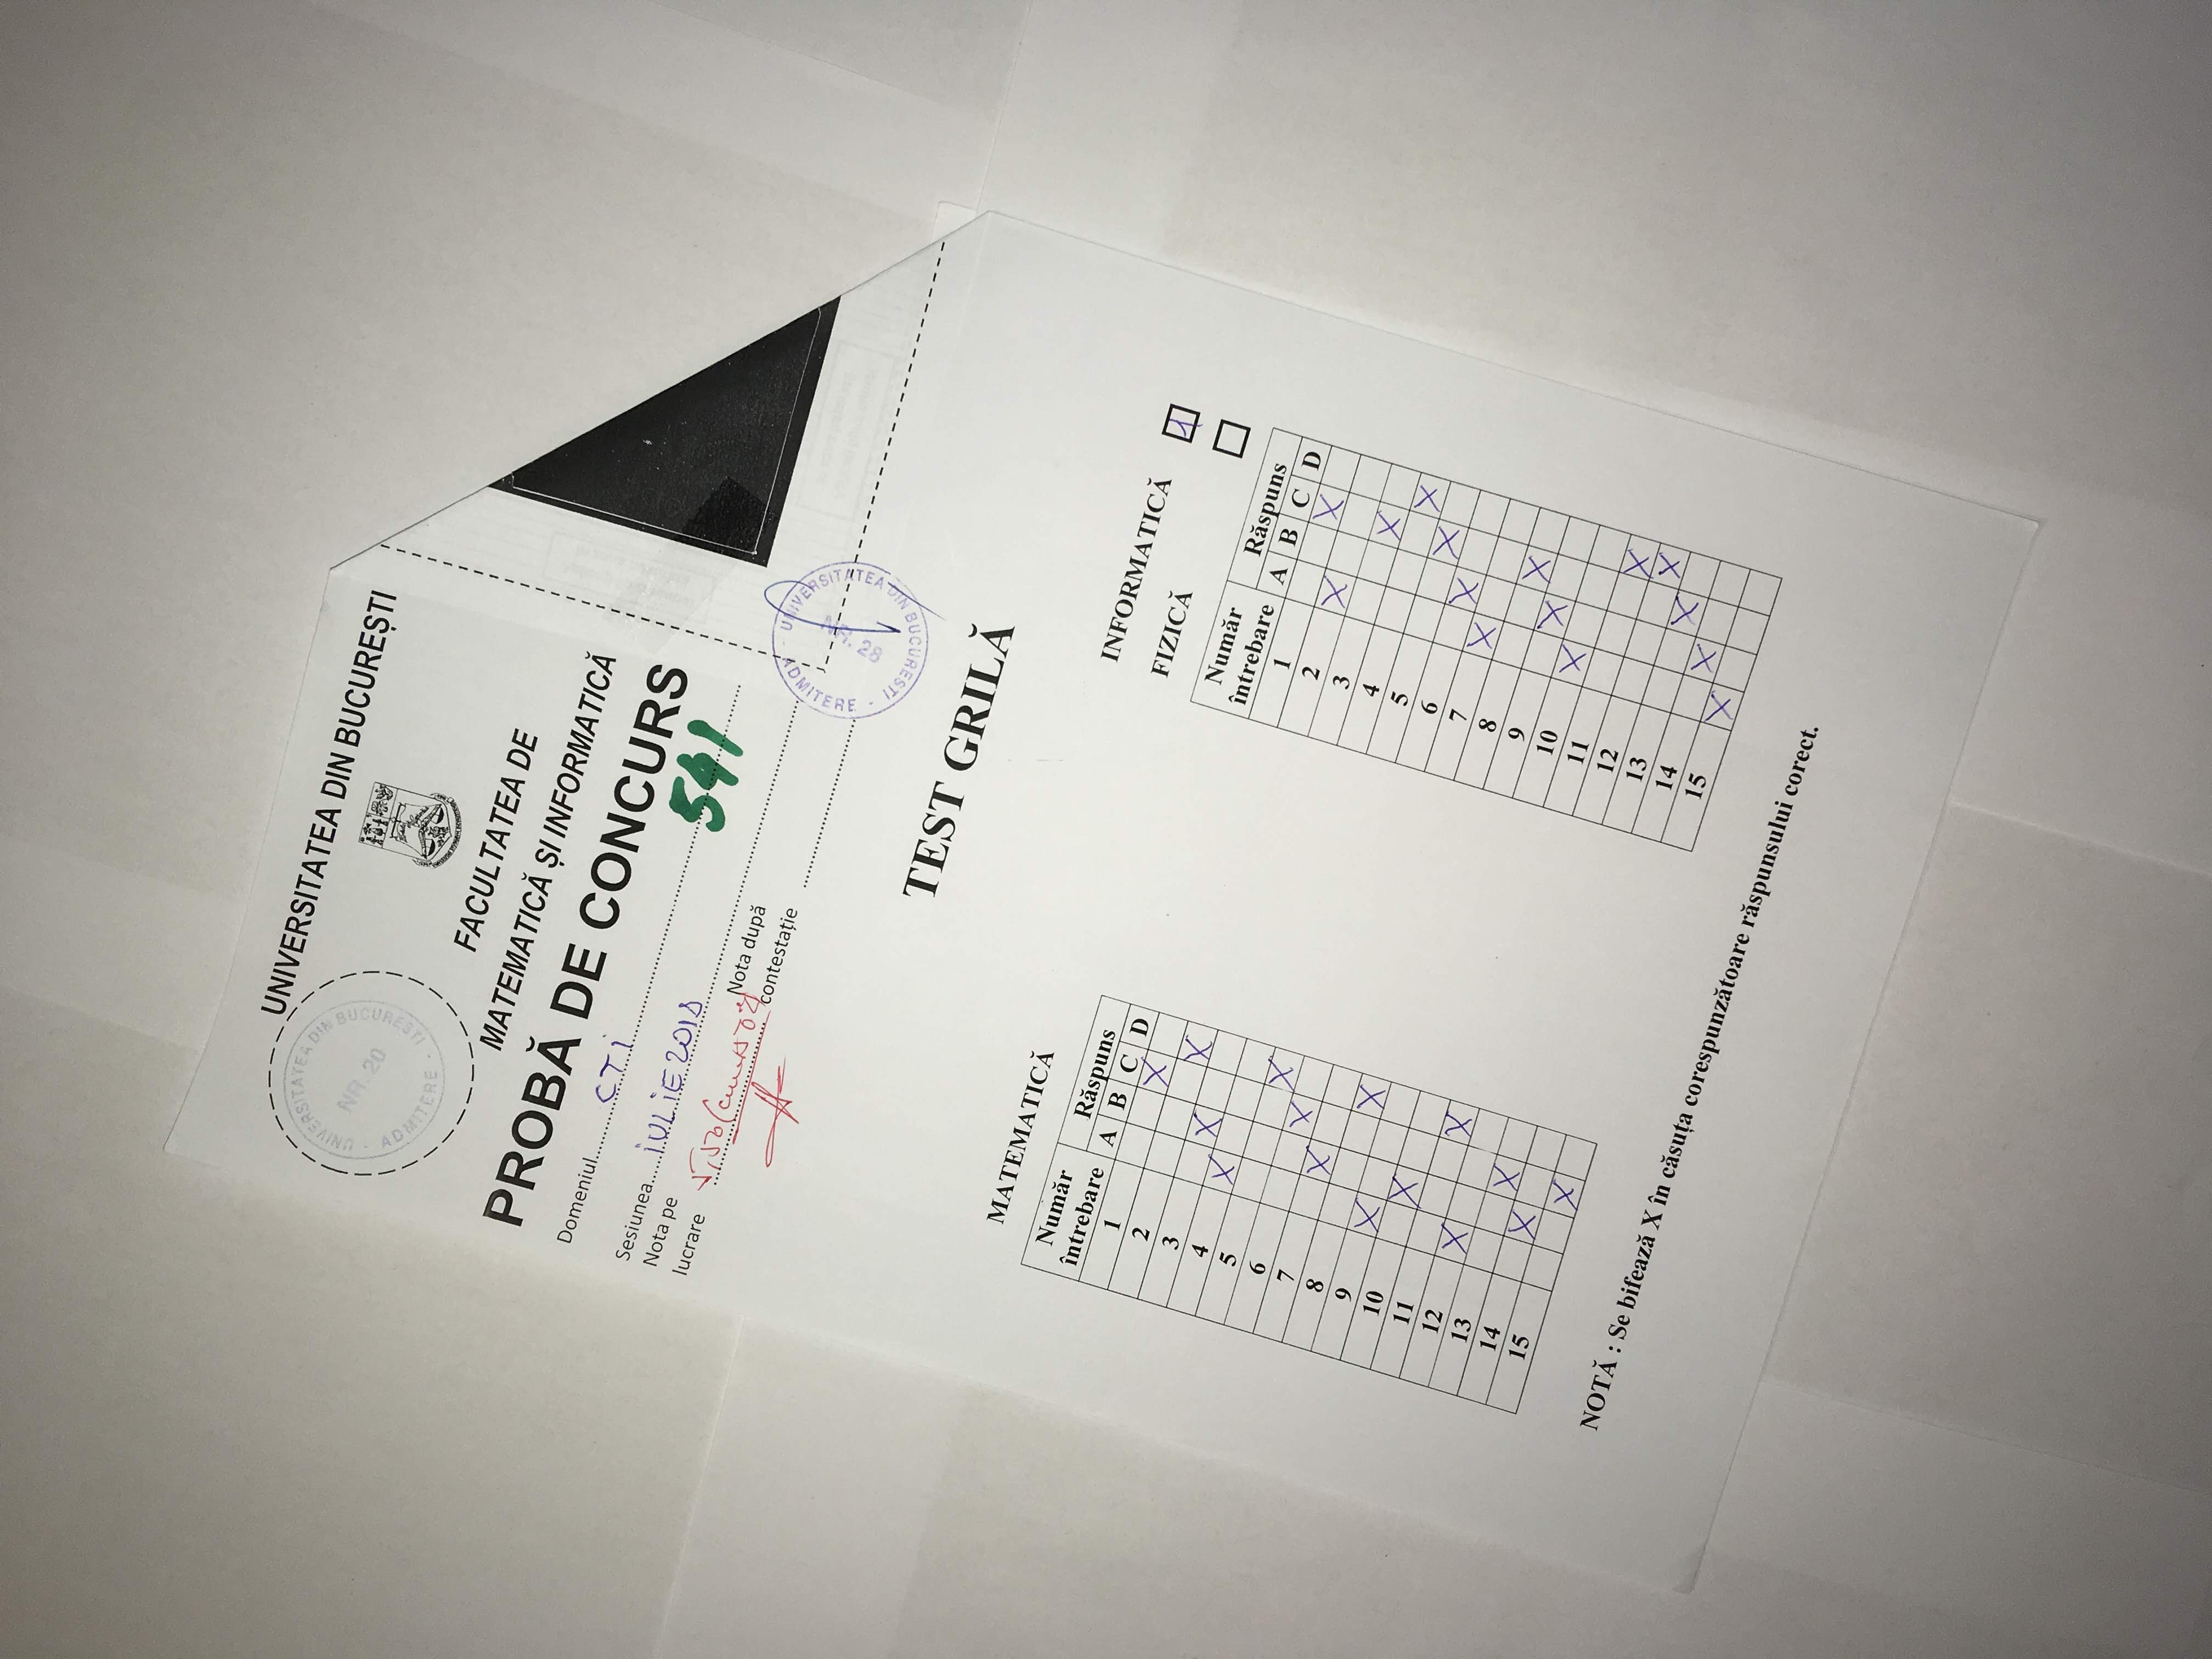 UNIVERSITATEA DIN BUCUREȘTI
UNIVERSITATEA DIN BUCURESTI · ADMITERE ·
NR. 20
FACULTATEA DE
MATEMATICĂ ȘI INFORMATICĂ
PROBĂ DE CONCURS
Domeniul CTi
541
Sesiunea iULiE 2018
Nota pe
lucrare 5,50
Nota după
contestație
UNIVERSITATEA DIN BUCURESTI · ADMITERE ·
NR. 28
TEST GRILĂ
MATEMATICĂ
Număr
întrebare
Răspuns
A B C D
1 X
2 X
3 X
4 X
5 X
6 X
7 X
8 X
9 X
10 X
11 X
12 X
13 X
14 X
15 X
INFORMATICĂ 1
FIZICĂ
Număr
întrebare
Răspuns
A B C D
1 X
2 X
3 X
4 X
5 X
6 X
7 X
8 X
9 X
10 X
11 X
12 X
13 X
14 X
15 X
NOTĂ : Se bifează X în căsuța corespunzătoare răspunsului corect.